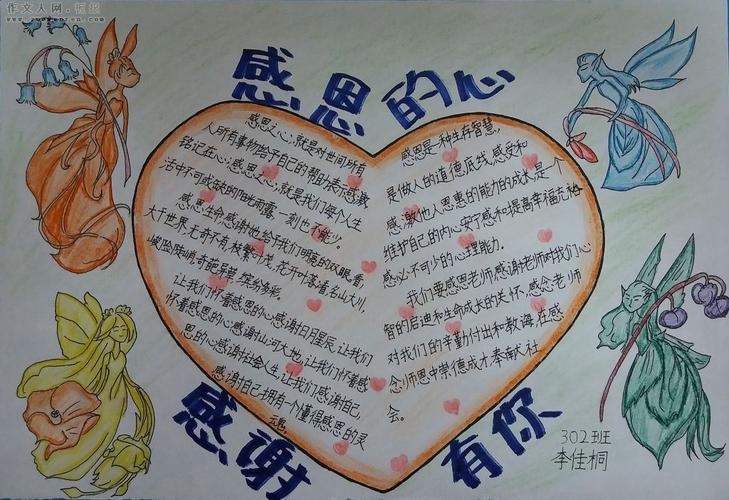 作文人网·
www.zuowenren.com
感恩的心
感恩之心,就是对世间所有
人所有事物给予自己的帮助表示感激,
铭记在心;感恩之心,就是我们每个人生
活中不可或缺的阳光雨露,一刻也不能少。
感恩生命感谢她给予我们明亮的双眼看,
大千世界,无奇不有,枝繁叶茂,花开叶落,看名山大川,
峻险陡峭,奇葩异草,缤纷多彩。
让我们怀着感恩的心感谢日月星辰,让我们
怀着感恩的心感谢山河大地,让我们怀着感
恩的心感谢社会人生,让我们感谢自己,
感谢自己拥有一个懂得感恩的灵
魂。
感恩是一种生存智慧,
是做人的道德底线,感受和
感激他人恩惠的能力的成长,是一个
维护自己的内心安宁感和提高幸福充裕
感必不可少的心理能力。
我们要感恩老师,感谢老师对我们心
智的启迪和生命成长的关怀,感念老师
对我们的辛勤付出和教诲,在感
念师恩中崇德成才奉献社
会。
感谢
有你
302班
李佳桐